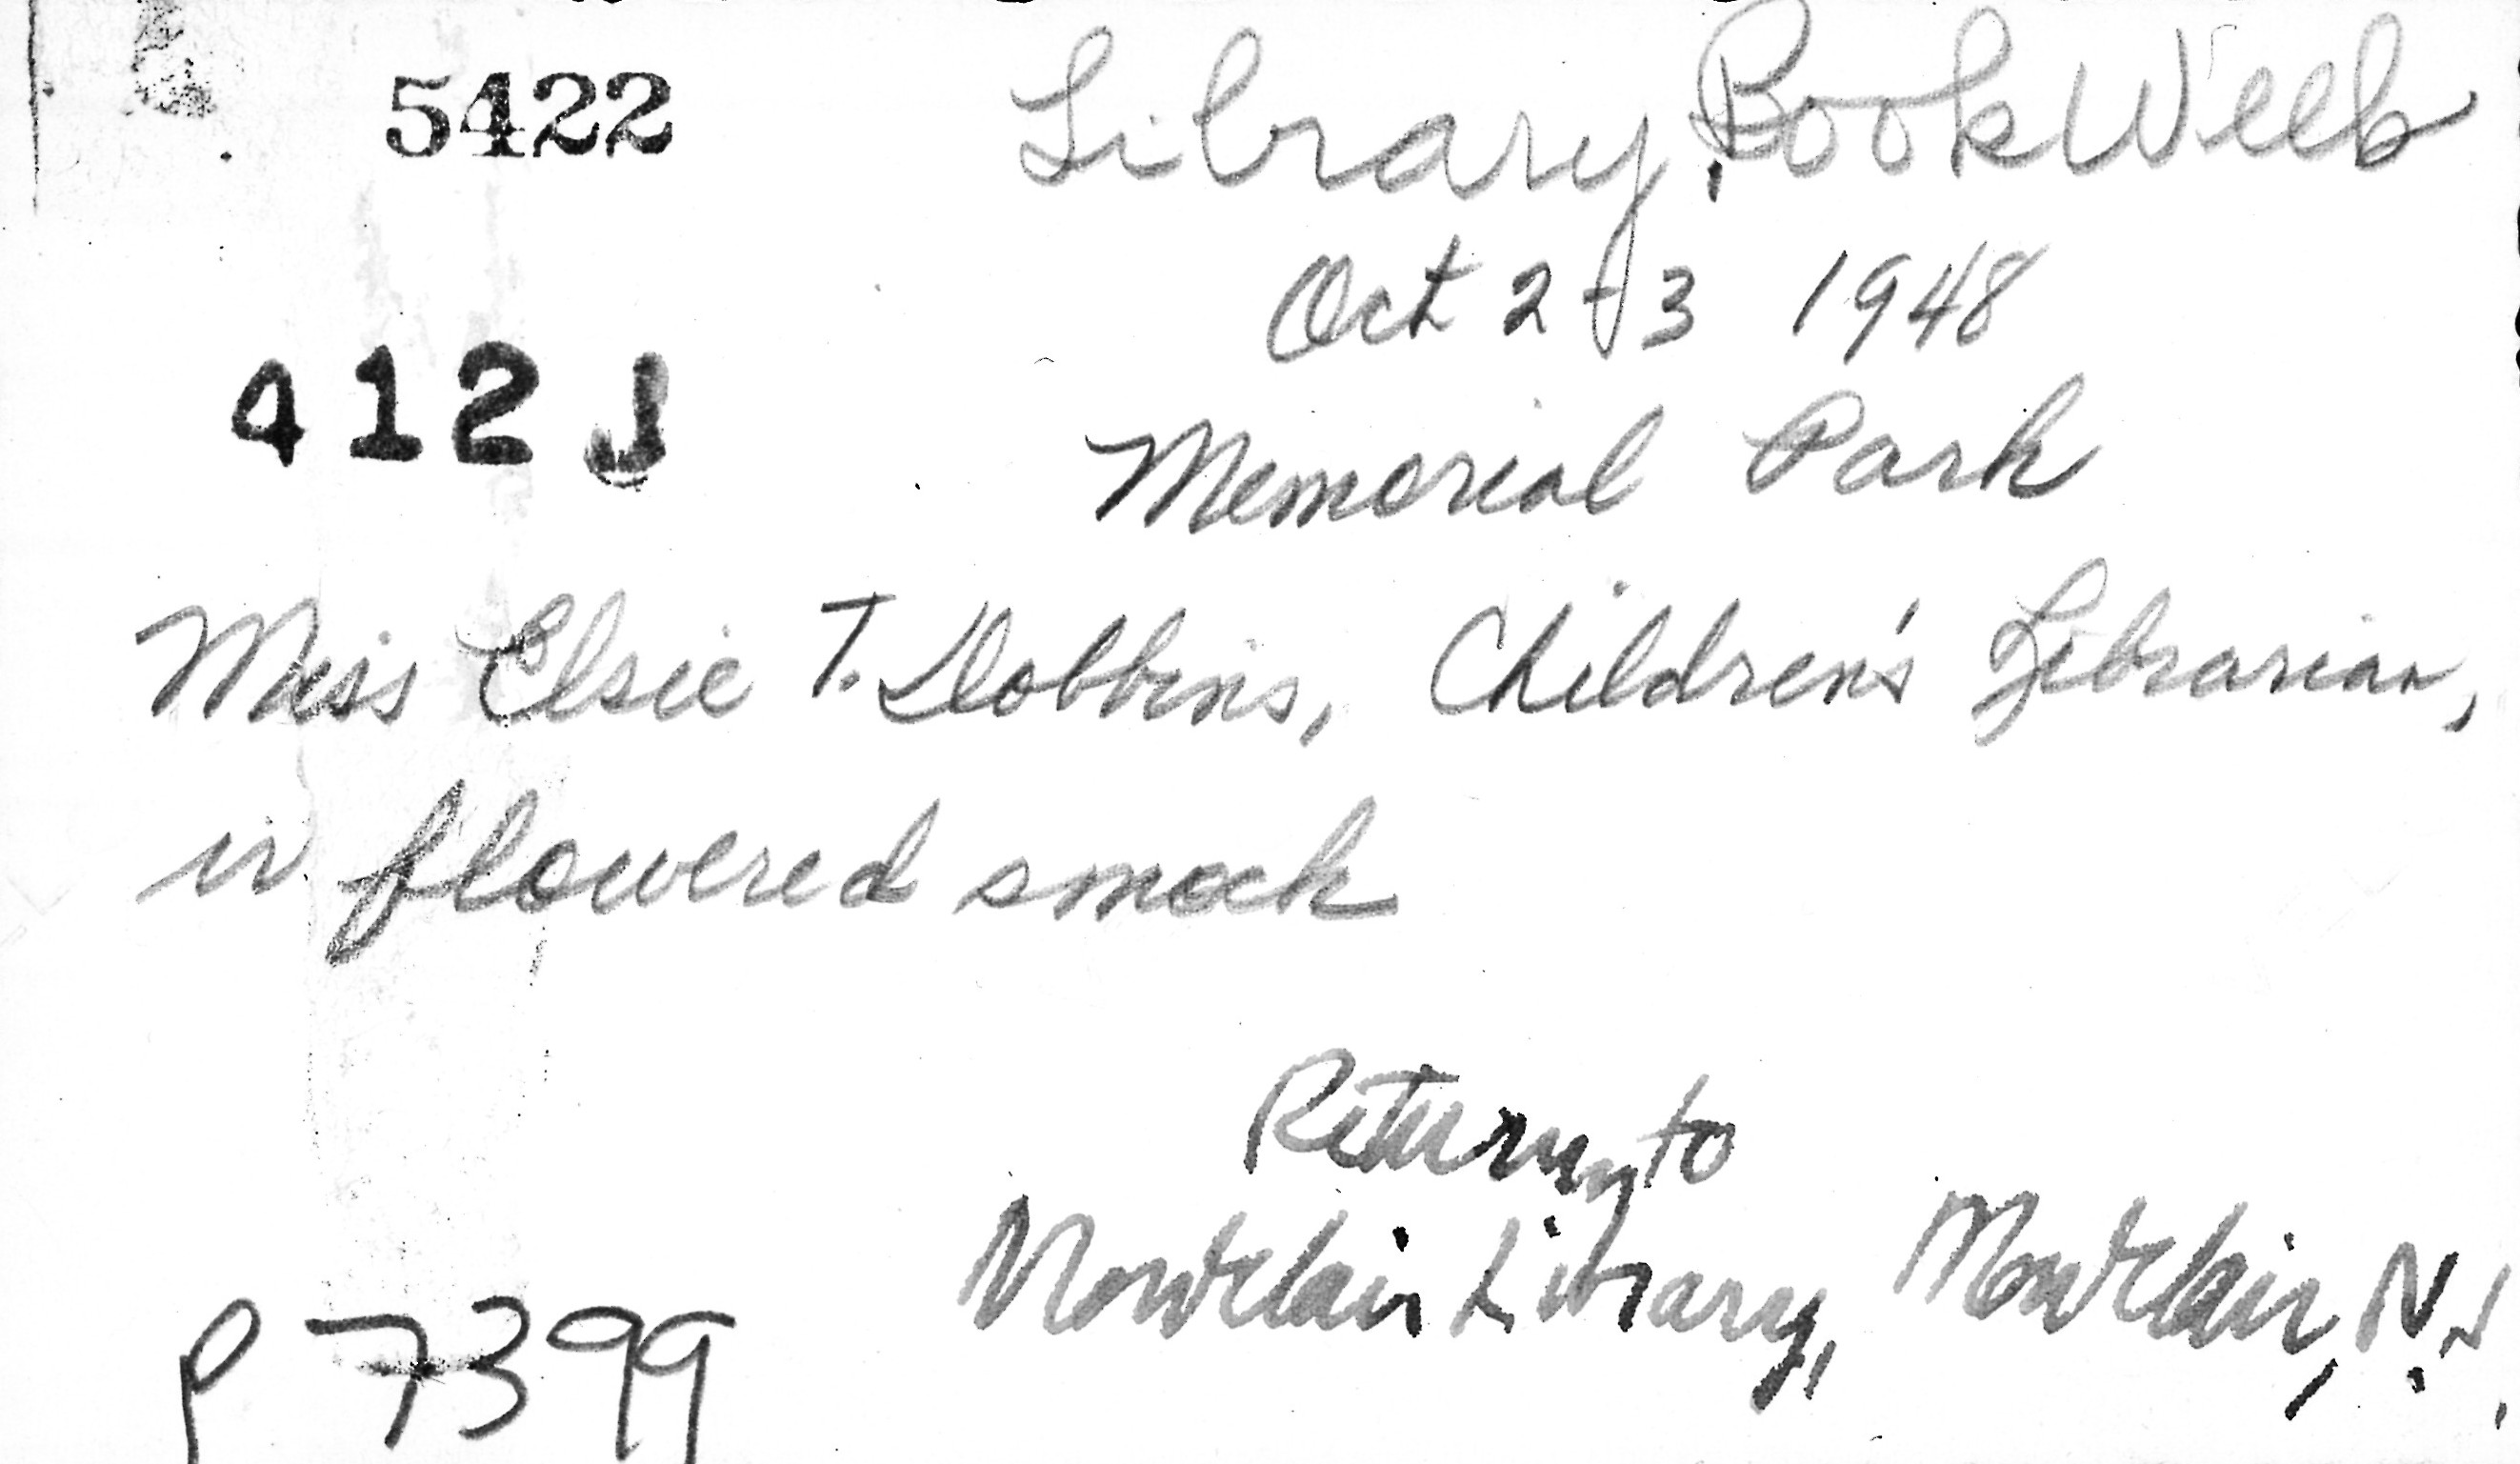 5422
Library Book Week
Oct 2-3 1948
412J
Memorial Park
Miss Elsie T. Dobbins, Children's Librarian,
in flowered smock
Return to
Montclair Library, Montclair, N.J.
P 7399